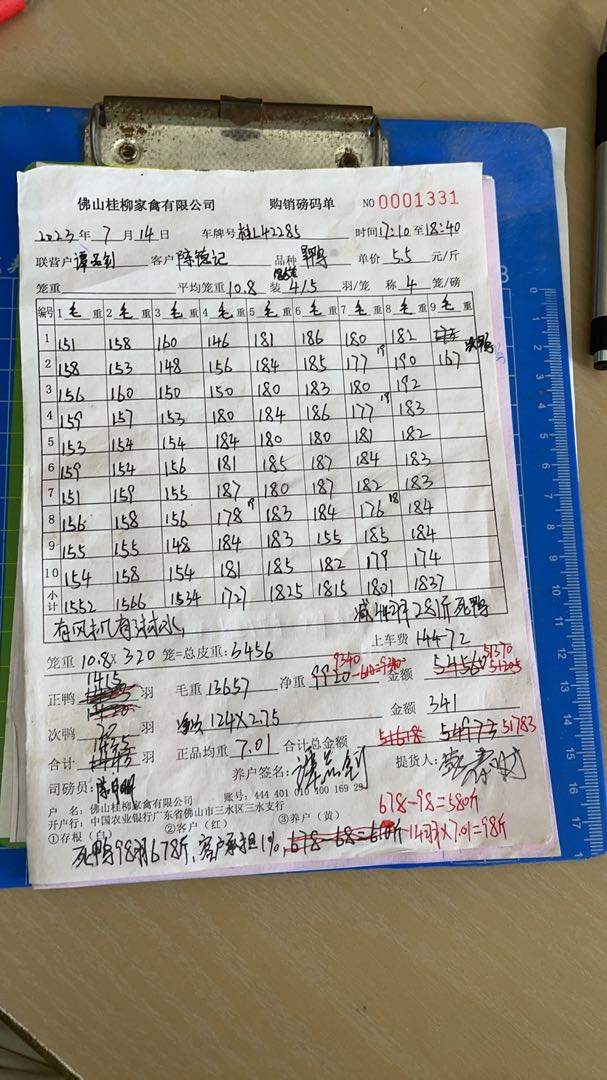 佛山桂柳家禽有限公司 购销磅码单 NO 0001331
2023年 7月14日 车牌号 桂L42285 时间17:10至18:40
联营户 客户 陈德记 品种 单价 5.5 元/斤
笼重 平均笼重10.8 装 4/5 羽/笼 称 4 笼/磅
编号 1毛重 2毛重 3毛重 4毛重 5毛重 6毛重 7毛重 8毛重 9毛重
1 151 158 160 146 181 186 180 182
2 158 153 148 156 184 185 177 19 190 167
3 156 160 150 150 180 183 180 192
4 159 157 153 180 184 186 177 18 183
5 153 154 154 184 180 180 181 182
6 159 154 156 181 185 187 184 183
7 151 159 155 187 180 187 182 183
8 156 158 156 178 19 183 184 176 18 184
9 155 155 148 184 183 155 185 184
10 154 158 154 181 185 182 179 174
小计 1552 1566 1534 1727 1825 1815 1801 1837
有风机有淋水, 死鸭
笼重 10.8 x 320 笼=总皮重: 3456 上车费 144-72
正鸭 1415 羽 毛重 13657 净重 9340 金额 54560 51370
51205
次鸭 羽 124 x 2.75 金额 341
合计 羽 正品均重 7.01 合计总金额 51678 54973 51783
司磅员: 养户签名: 提货人:
户 名: 佛山桂柳家禽有限公司 账号: 444 401 010 400 169 29
开户行: 中国农业银行广东省佛山市三水区三水支行
678-98=580斤
①存根(白) ②客户(红) ③养户(黄)
14羽x7.01=98斤
死鸭98羽678斤, 客户承担1%, 678-68=610斤